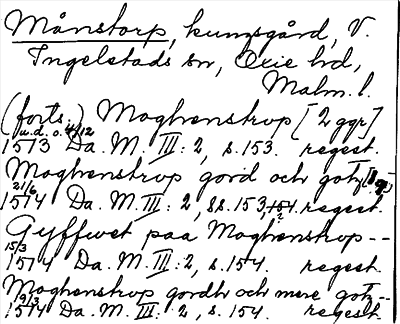 Månstorp, kungsgård, V.
Ingelstads sn, Oxie hd,
Malm. l.
(forts.) Moghenstrup [2 ggr]
u.d. o. 4/12
1513 Da. M. III: 2, s. 153. regest.
Moghenstrup gord och gotz
21/6
1514 Da. M. III: 2, ss. 153, 154. regest.
Gyffwet paa Moghenstrop --
15/3
1514 Da. M. III: 2, s. 154. regest.
Moghenstrup gordh och mere gotz --
9/3
1514 Da. M. III: 2, s. 154. regest.